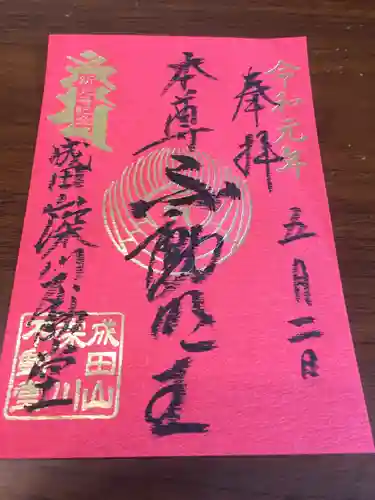 令和元年
奉拝
五月二日
本尊不動明王
成田山深川不動堂
成田山
深川
不動堂